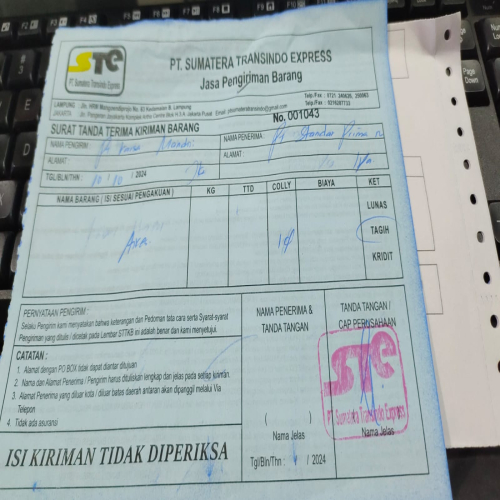 STE
PT. Sumatera Transindo Express
PT. SUMATERA TRANSINDO EXPRESS
Jasa Pengiriman Barang
LAMPUNG
JAKARTA
No. 001043
SURAT TANDA TERIMA KIRIMAN BARANG
NAMA PENGIRIM :
NAMA PENERIMA :
ALAMAT :
ALAMAT :
TGL/BLN/THN : 10 / 10 / 2024
NAMA BARANG ( ISI SESUAI PENGAKUAN ) KG TTD COLLY BIAYA KET
LUNAS
TAGIH
KRIDIT
PERNYATAAN PENGIRIM :
Selaku Pengirim kami menyatakan bahwa keterangan dan Pedoman tata cara serta Syarat-syarat
Pengiriman yang ditulis / dicetak pada Lembar STTKB ini adalah benar dan kami menyetujui.
CATATAN :
1. Alamat dengan PO BOX tidak dapat diantar ditujuan
2. Nama dan Alamat Penerima / Pengirim harus dituliskan lengkap dan jelas pada setiap kiriman.
3. Alamat Penerima yang diluar kota / diluar batas daerah antaran akan dipanggil melalui Via
Telepon
4. Tidak ada asuransi
ISI KIRIMAN TIDAK DIPERIKSA
NAMA PENERIMA &
TANDA TANGAN
( )
Nama Jelas
Tgl/Bln/Thn : / / 2024
TANDA TANGAN /
CAP PERUSAHAAN
STE
PT. Sumatera Transindo Express
Nama Jelas
Page
Down